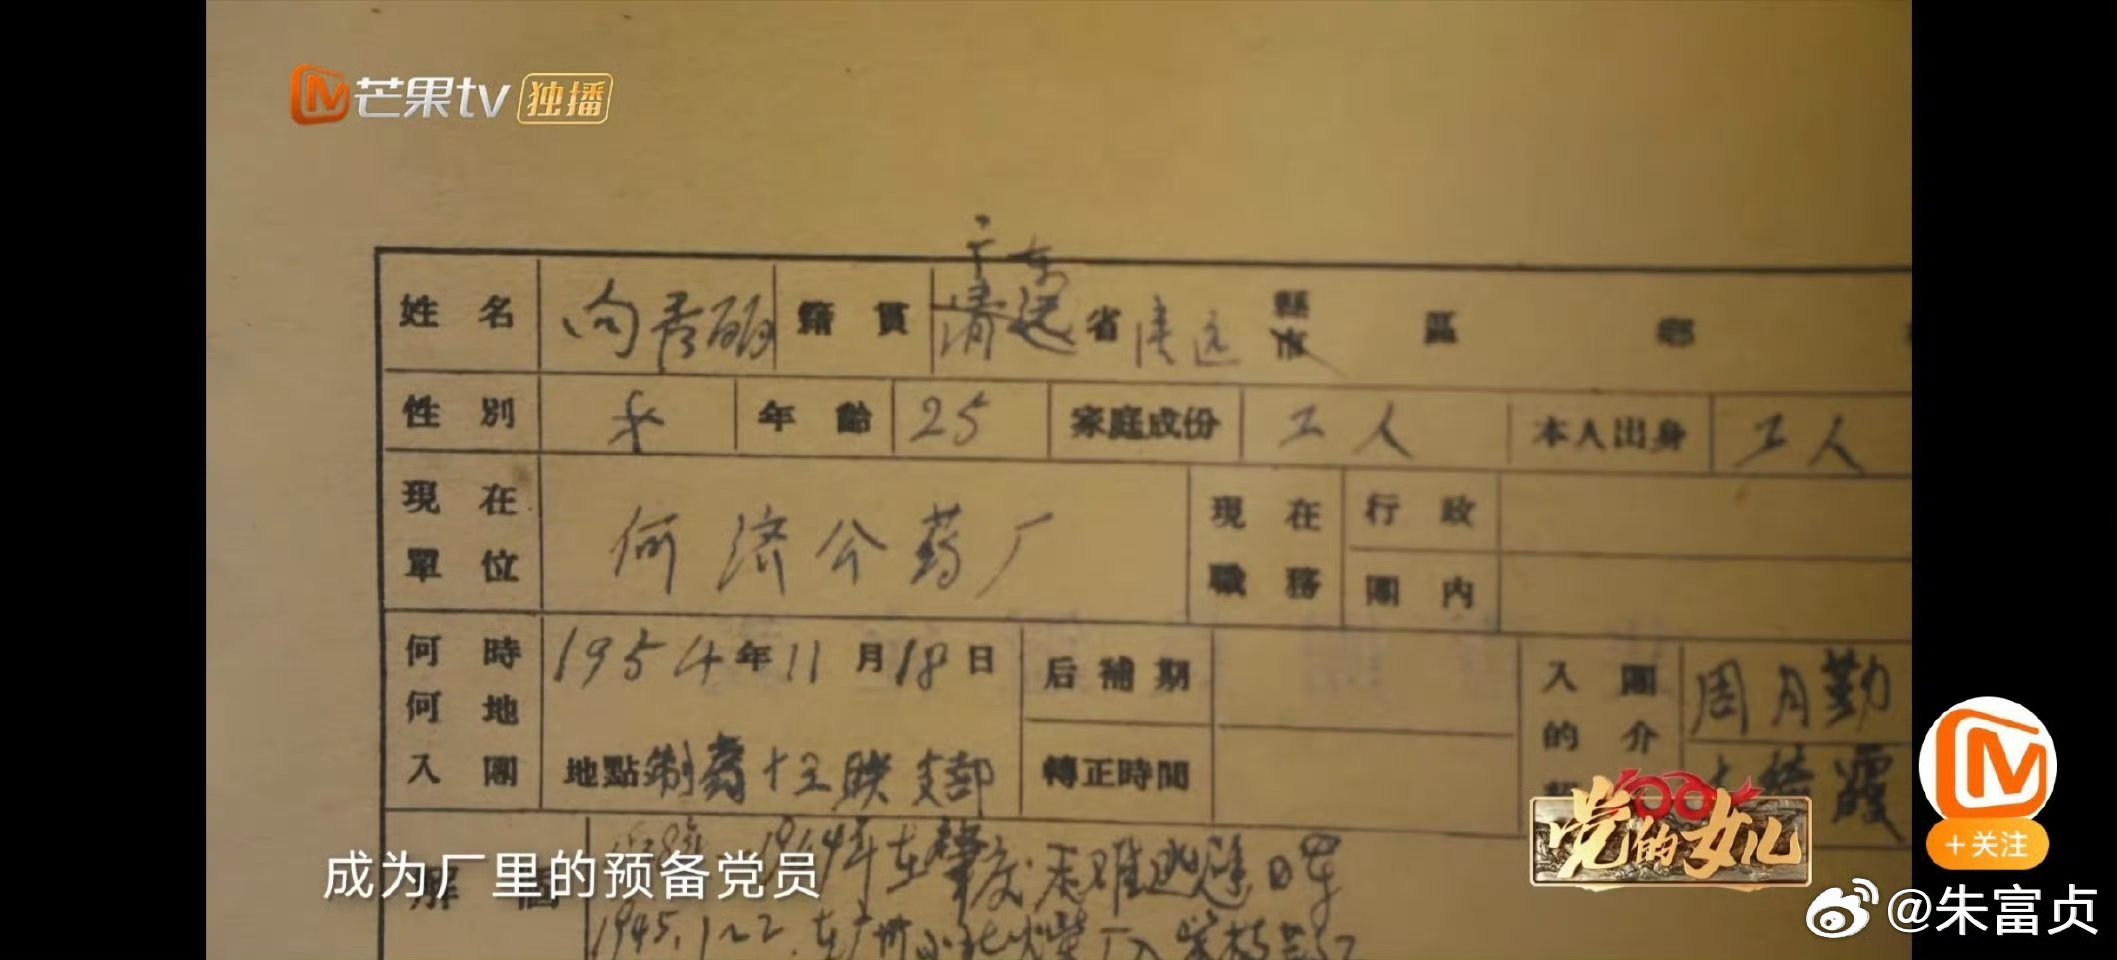 芒果tv 独播
广东
姓名 向秀丽 籍貫 清远省清远縣市 區 鄉
性別 女 年齡 25 家庭成份 工人 本人出身 工人
現在單位 何济公药厂 現在職務 行政
團內
何時何地入團 1954年11月18日 后補期 入團的介 周月勤
地點 制药十三联支部 轉正時間 霞
年在肇庆
1945.1~2.在广州
成为厂里的预备党员
100
党的女儿
+关注
@朱富贞